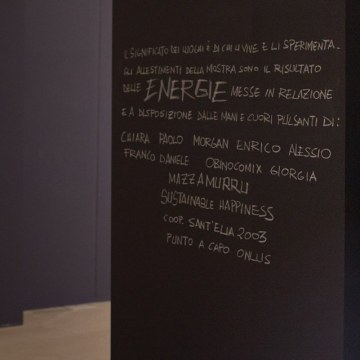 IL SIGNIFICATO DEI LUOGHI È DI CHI LI VIVE E LI SPERIMENTA.
GLI ALLESTIMENTI DELLA MOSTRA SONO IL RISULTATO
DELLE ENERGIE MESSE IN RELAZIONE
E A DISPOSIZIONE DALLE MANI E CUORI PULSANTI DI:
CHIARA PAOLO MORGAN ENRICO ALESSIO
FRANCO DANIELE OBINOCOMIX GIORGIA
MAZZAMURRU
SUSTAINABLE HAPPINESS
COOP. SANT'ELIA 2003
PUNTO A CAPO ONLUS